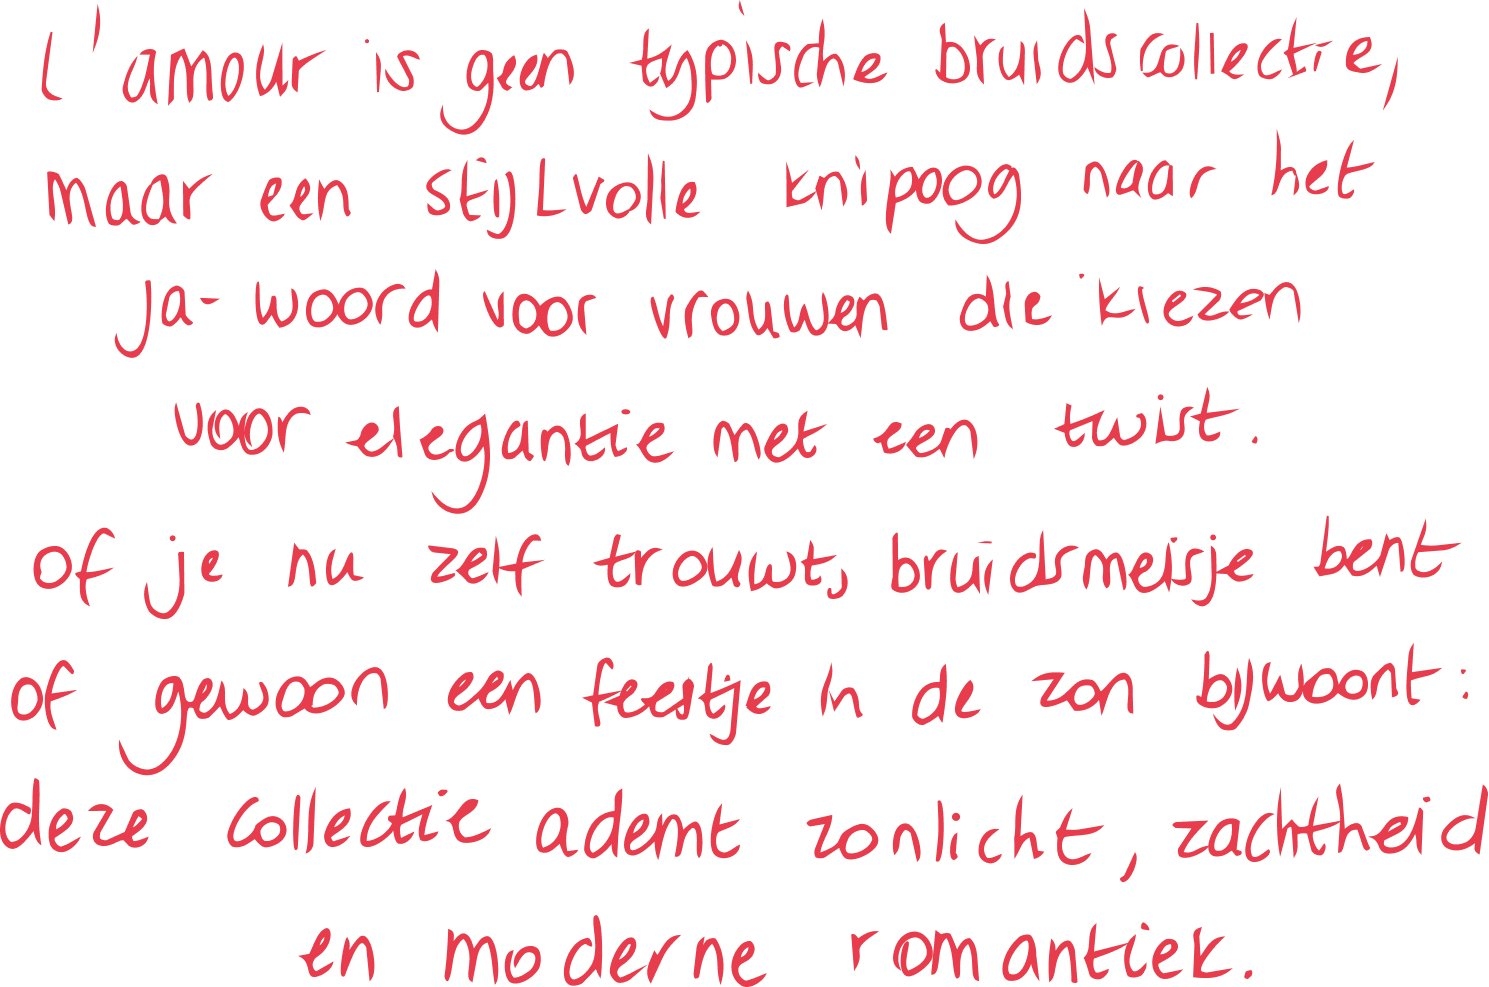 L'amour is geen typische bruidscollectie,
maar een stijlvolle knipoog naar het
ja-woord voor vrouwen die kiezen
voor elegantie met een twist.
of je nu zelf trouwt, bruidsmeisje bent
of gewoon een feestje in de zon bijwoont:
deze collectie ademt zonlicht, zachtheid
en moderne romantiek.